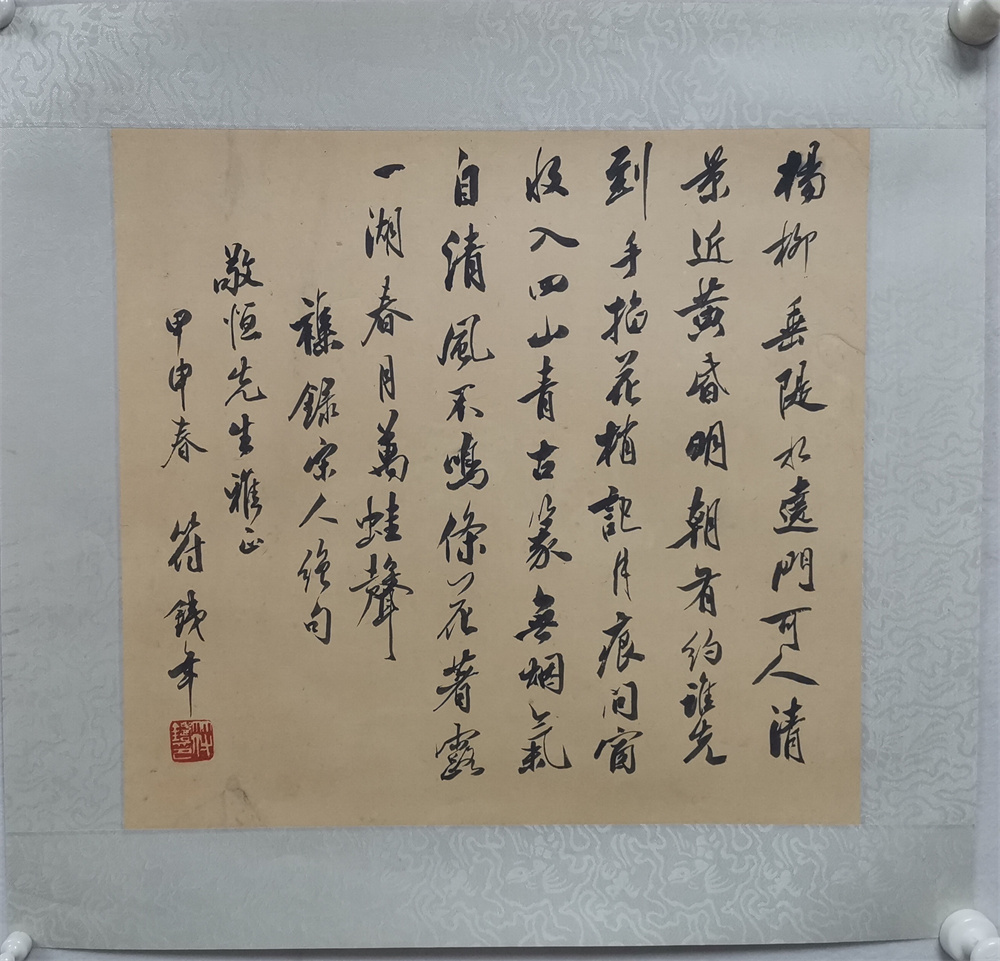 楊柳垂隄水遶門可人清
景近黃昏明朝有約誰先
到手掐花梢記月痕閒窗
收入四山青古篆無烟氣
自清風不鳴條花著露
一湖春月萬蛙聲
襍錄宋人絕句
敬恒先生雅正
甲申春 符鐵年
符鐵年